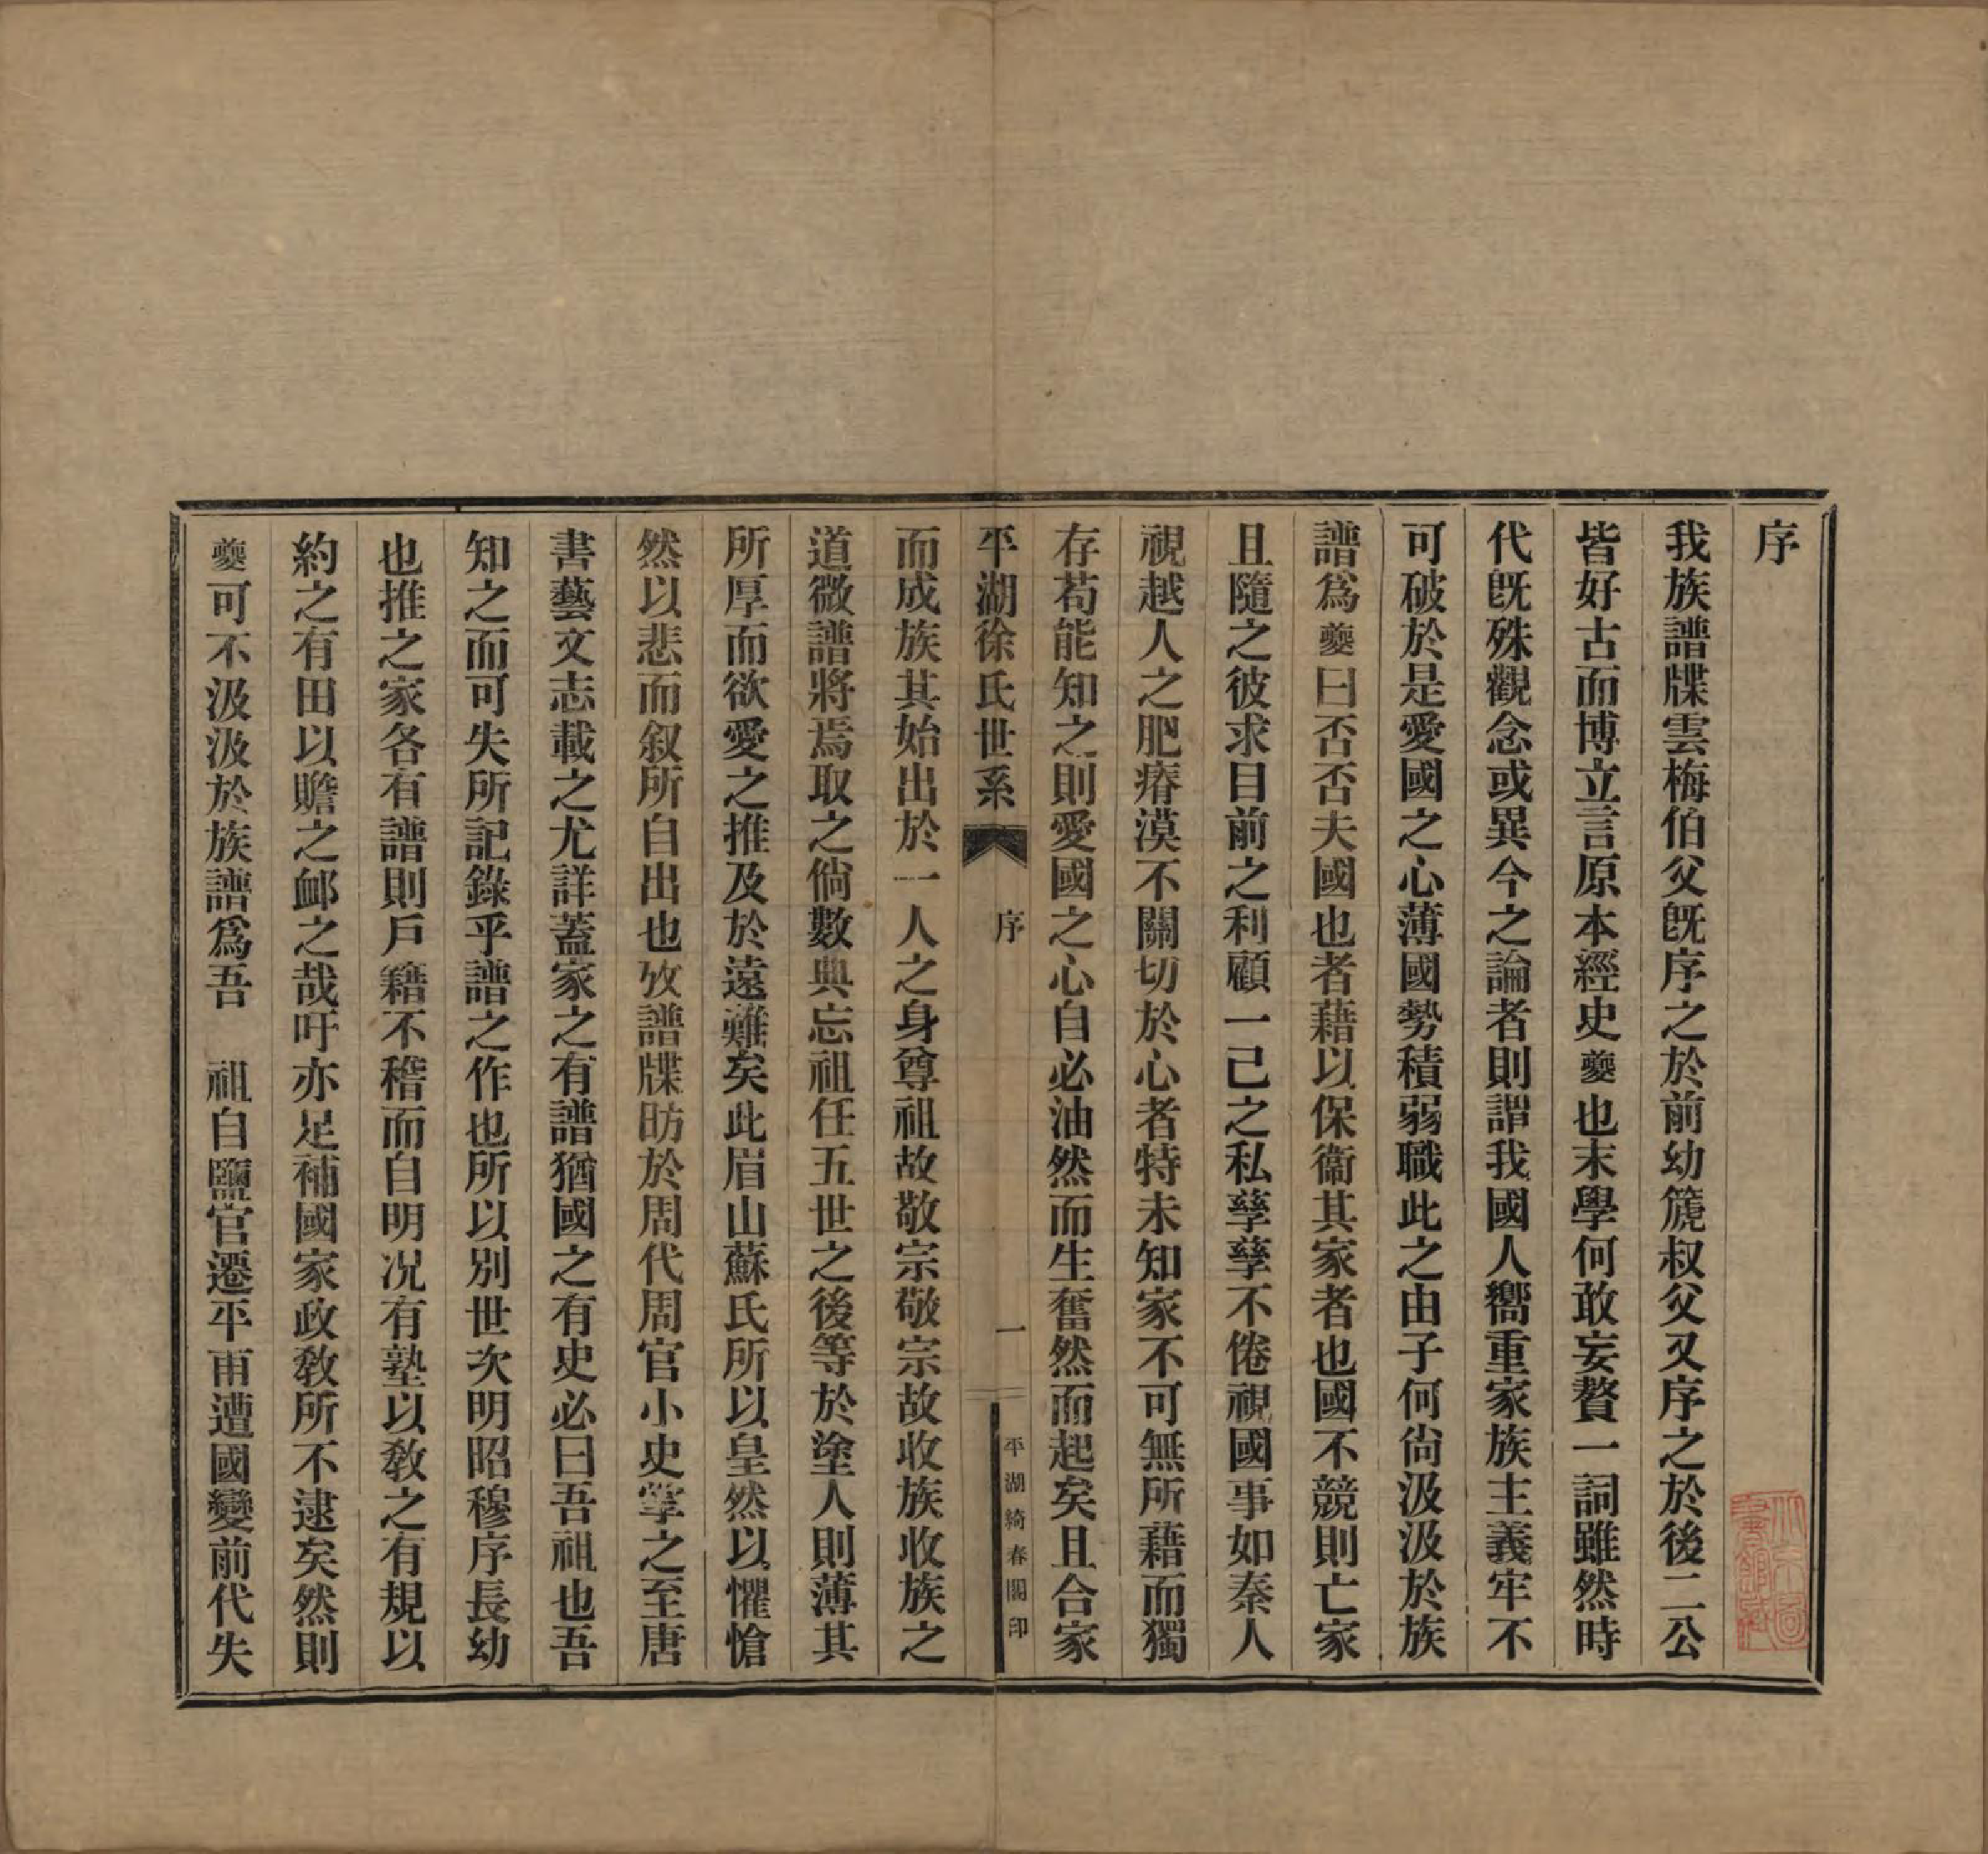 序
我族譜牒雲梅伯父既序之於前幼篪叔父又序之於後二公
皆好古而博立言原本經史夔也末學何敢妄贅一詞雖然時
代既殊觀念或異今之論者則謂我國人嚮重家族主義牢不
可破於是愛國之心薄國勢積弱職此之由子何尙汲汲於族
譜爲夔曰否否夫國也者藉以保衞其家者也國不競則亡家
且隨之彼求目前之利顧一己之私孳孳不倦視國事如秦人
視越人之肥瘠漠不關切於心者特未知家不可無所藉而獨
存苟能知之則愛國之心自必油然而生奮然而起矣且合家
平湖徐氏世系 序 一 平湖綺春閣印
而成族其始出於一人之身尊祖故敬宗敬宗故收族收族之
道微譜將焉取之倘數典忘祖任五世之後等於塗人則薄其
所厚而欲愛之推及於遠難矣此眉山蘇氏所以皇然以懼愴
然以悲而叙所自出也攷譜牒昉於周代周官小史掌之至唐
書藝文志載之尤詳蓋家之有譜猶國之有史必曰吾祖也吾
知之而可失所記錄乎譜之作也所以別世次明昭穆序長幼
也推之家各有譜則戶籍不稽而自明况有塾以敎之有規以
約之有田以贍之卹之哉吁亦足補國家政敎所不逮矣然則
夔可不汲汲於族譜爲吾　祖自鹽官遷平甫遭國變前代失